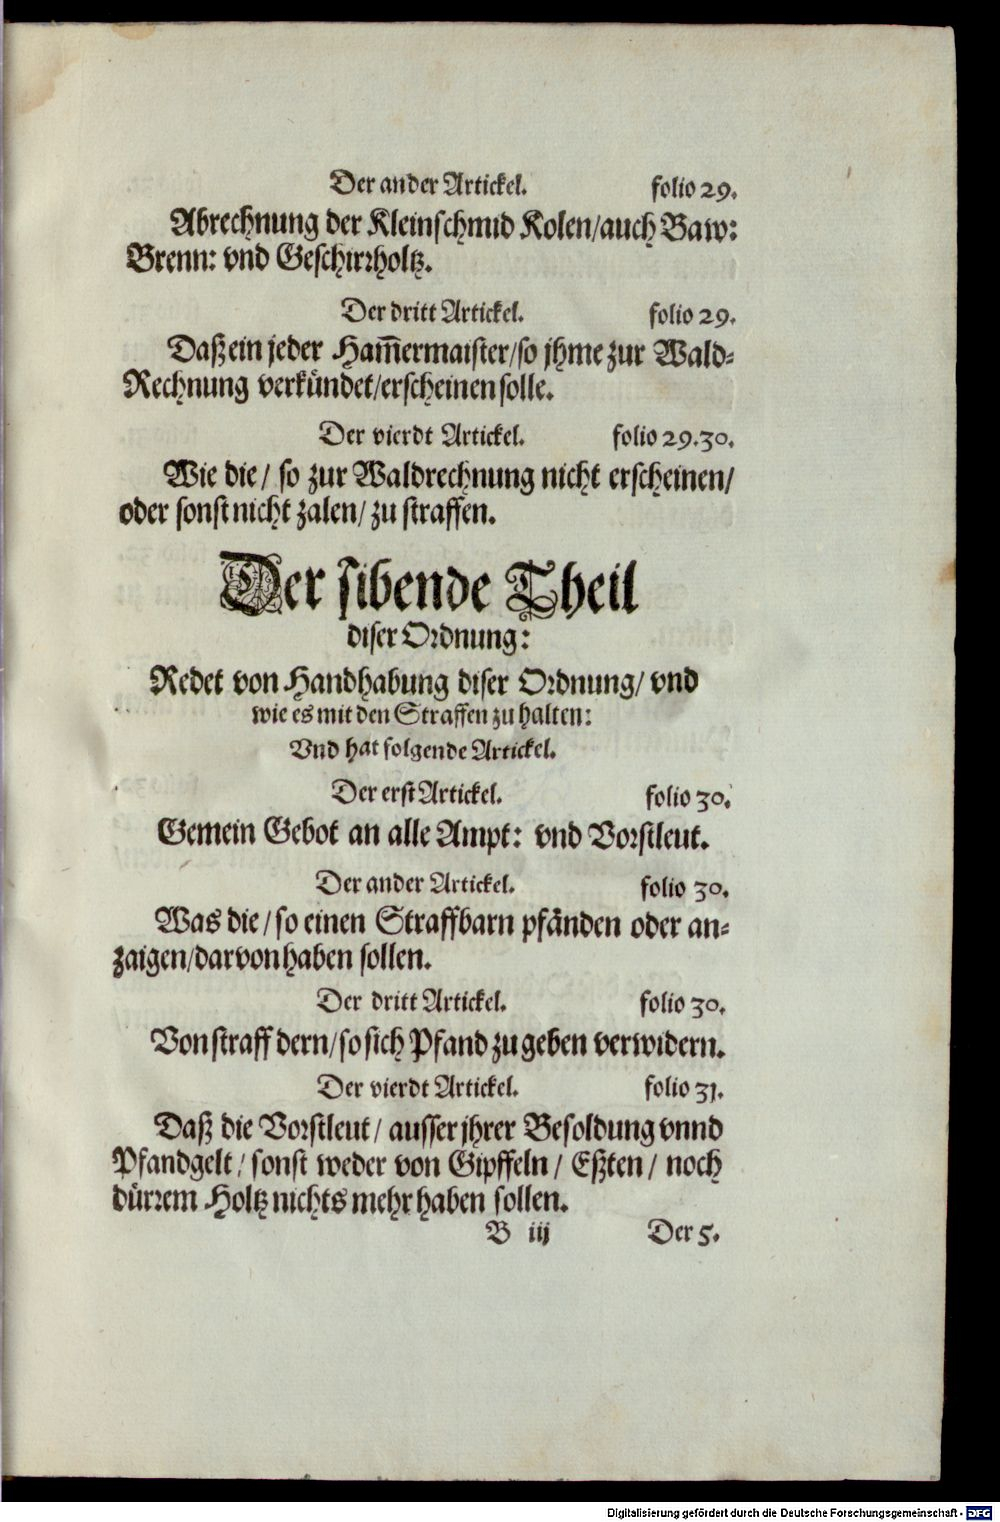 Der ander Artickel. folio 29.
Abrechnung der Kleinschmid Kolen/auch Baw:
Brenn: vnd Geschirrholtz.
Der dritt Artickel. folio 29.
Daß ein jeder Ham̃ermaister/so jhme zur Wald-
Rechnung verkündet/erscheinen solle.
Der vierdt Artickel. folio 29.30.
Wie die/ so zur Waldrechnung nicht erscheinen/
oder sonst nicht zalen/ zu straffen.
Der sibende Theil
diser Ordnung:
Redet von Handhabung diser Ordnung/ vnd
wie es mit den Straffen zu halten:
Vnd hat folgende Artickel.
Der erst Artickel. folio 30.
Gemein Gebot an alle Ampt: vnd Vorstleut.
Der ander Artickel. folio 30.
Was die/ so einen Straffbarn pfänden oder an-
zaigen/darvon haben sollen.
Der dritt Artickel. folio 30.
Von straff dern/so sich Pfand zu geben verwidern.
Der vierdt Artickel. folio 31.
Daß die Vorstleut/ ausser jhrer Besoldung vnnd
Pfandgelt/ sonst weder von Gipffeln/ Eßten/ noch
dürrem Holtz nichts mehr haben sollen.
B iij Der 5.
Digitalisierung gefördert durch die Deutsche Forschungsgemeinschaft - DFG